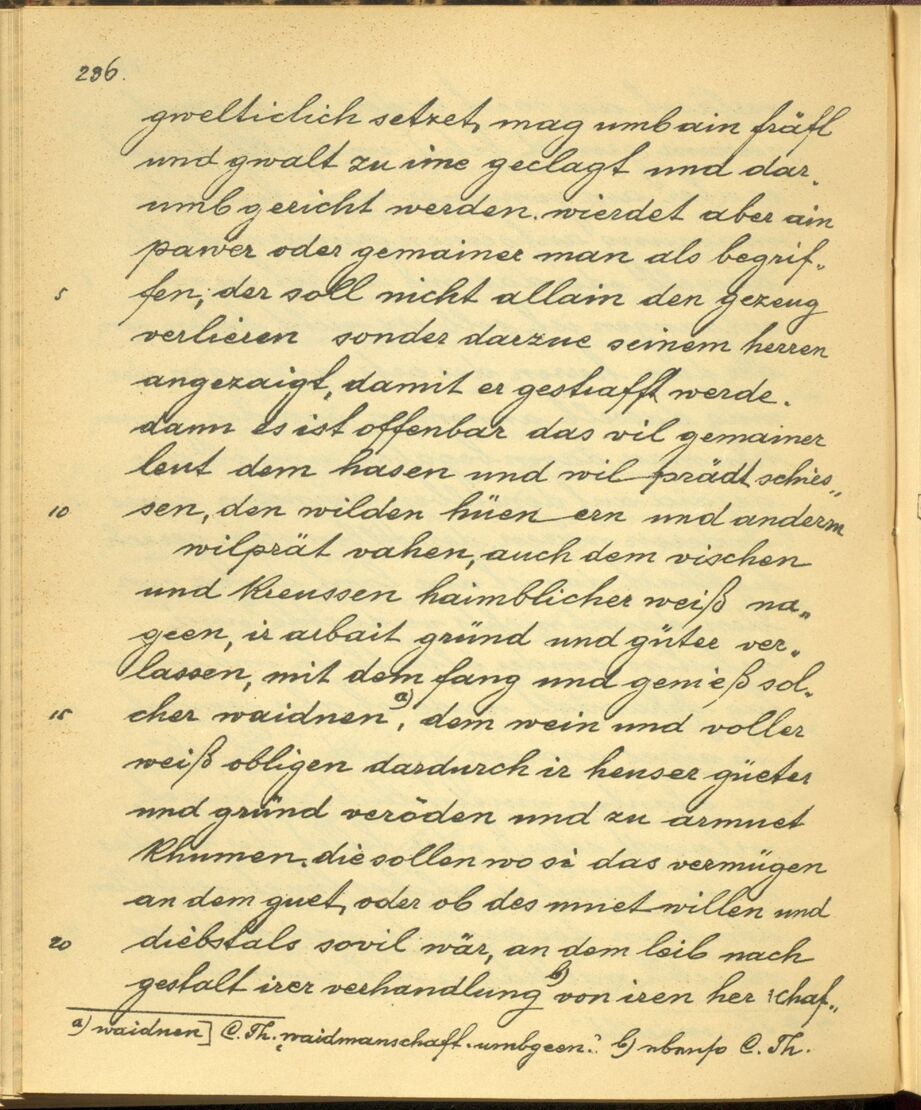 236.
gwelticlich setzet, mag umb ain fräfl
und gwalt zu ime geclagt und dar„
umb gericht werden. wierdet aber ain
pawer oder gemainer man als begrif„
5 fen, der soll nicht allain den gezeug
verlieren sonder darzue seinem herren
angezaigt, damit er gestrafft werde.
dann es ist offenbar das vil gemainer
leut dem hasen und wil prädt schies„
10 sen, den wilden hüen ern und anderm
wilprät vahen, auch dem vischen
und Kreussen haimblicher weiß na„
geen, ir arbait gründ und güter ver„
lassen, mit dem fang und genieß sol„
15 cher waidnen a), dem wein und voller
weiß obligen dardurch ir heuser güeter
und gründ veröden und zu armuet
Khumen, die sollen wo si das vermügen
an dem guet, oder ob des muet willen und
20 diebstals sovil wär, an dem leib nach
gestalt irer verhandlung b) von iren her schaf„
a) waidnen] C. Th. „waidmanschaft umbgeen." b) C. Th.